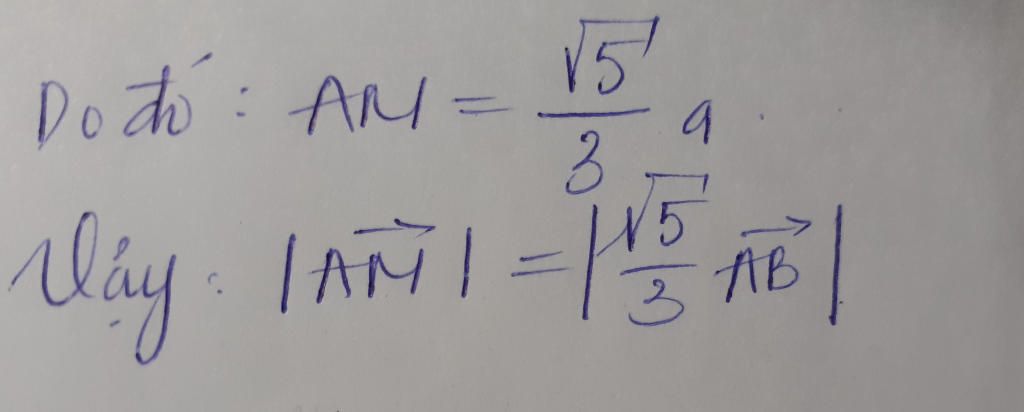 Do đó: AM = $\frac{\sqrt{5}}{3}$ a.
Vậy: $|\overrightarrow{AM}| = \left|\frac{\sqrt{5}}{3}\overrightarrow{AB}\right|$